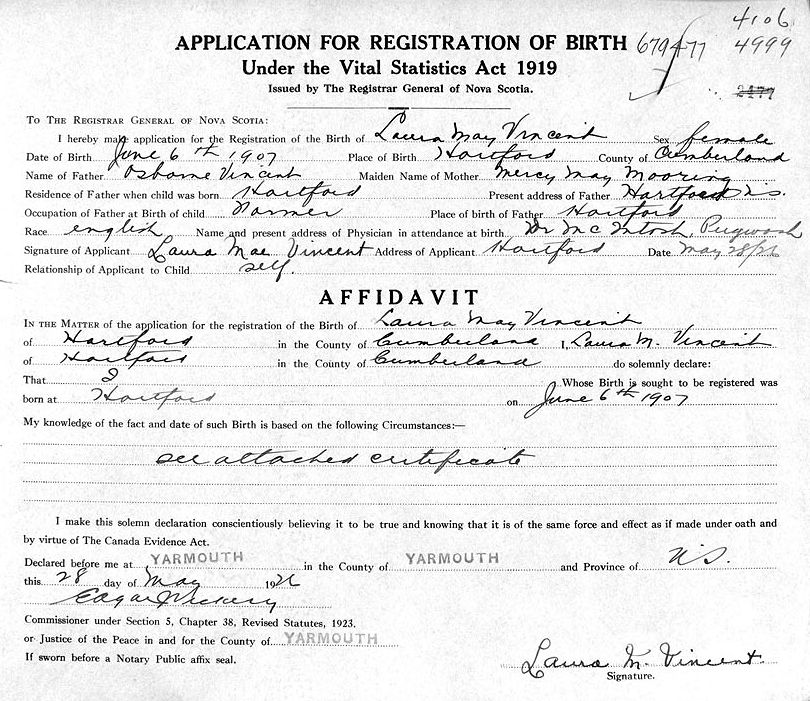 4106
APPLICATION FOR REGISTRATION OF BIRTH 679477 4999
Under the Vital Statistics Act 1919
Issued by The Registrar General of Nova Scotia. 2477
TO THE REGISTRAR GENERAL OF NOVA SCOTIA:
I hereby make application for the Registration of the Birth of Laura May Vincent Sex female
Date of Birth June 6th 1907 Place of Birth Hartford County of Cumberland
Name of Father Osborne Vincent Maiden Name of Mother Mercy May Mooring
Residence of Father when child was born Hartford Present address of Father Hartford N.S.
Occupation of Father at Birth of child Farmer Place of birth of Father Hartford
Race english Name and present address of Physician in attendance at birth Dr McIntosh, Pugwash
Signature of Applicant Laura Mae Vincent Address of Applicant Hartford Date May 28/26
Relationship of Applicant to Child self.
AFFIDAVIT
IN THE MATTER of the application for the registration of the Birth of Laura May Vincent
of Hartford in the County of Cumberland I, Laura M. Vincent
of Hartford in the County of Cumberland do solemnly declare:
That I Whose Birth is sought to be registered was
born at Hartford on June 6th 1907
My knowledge of the fact and date of such Birth is based on the following Circumstances:—
see attached certificate
I make this solemn declaration conscientiously believing it to be true and knowing that it is of the same force and effect as if made under oath and
by virtue of The Canada Evidence Act.
Declared before me at YARMOUTH in the County of YARMOUTH and Province of N.S.
this 28 day of May 1926
Edgar
Commissioner under Section 5, Chapter 38, Revised Statutes, 1923.
or Justice of the Peace in and for the County of YARMOUTH
If sworn before a Notary Public affix seal.
Laura M. Vincent.
Signature.